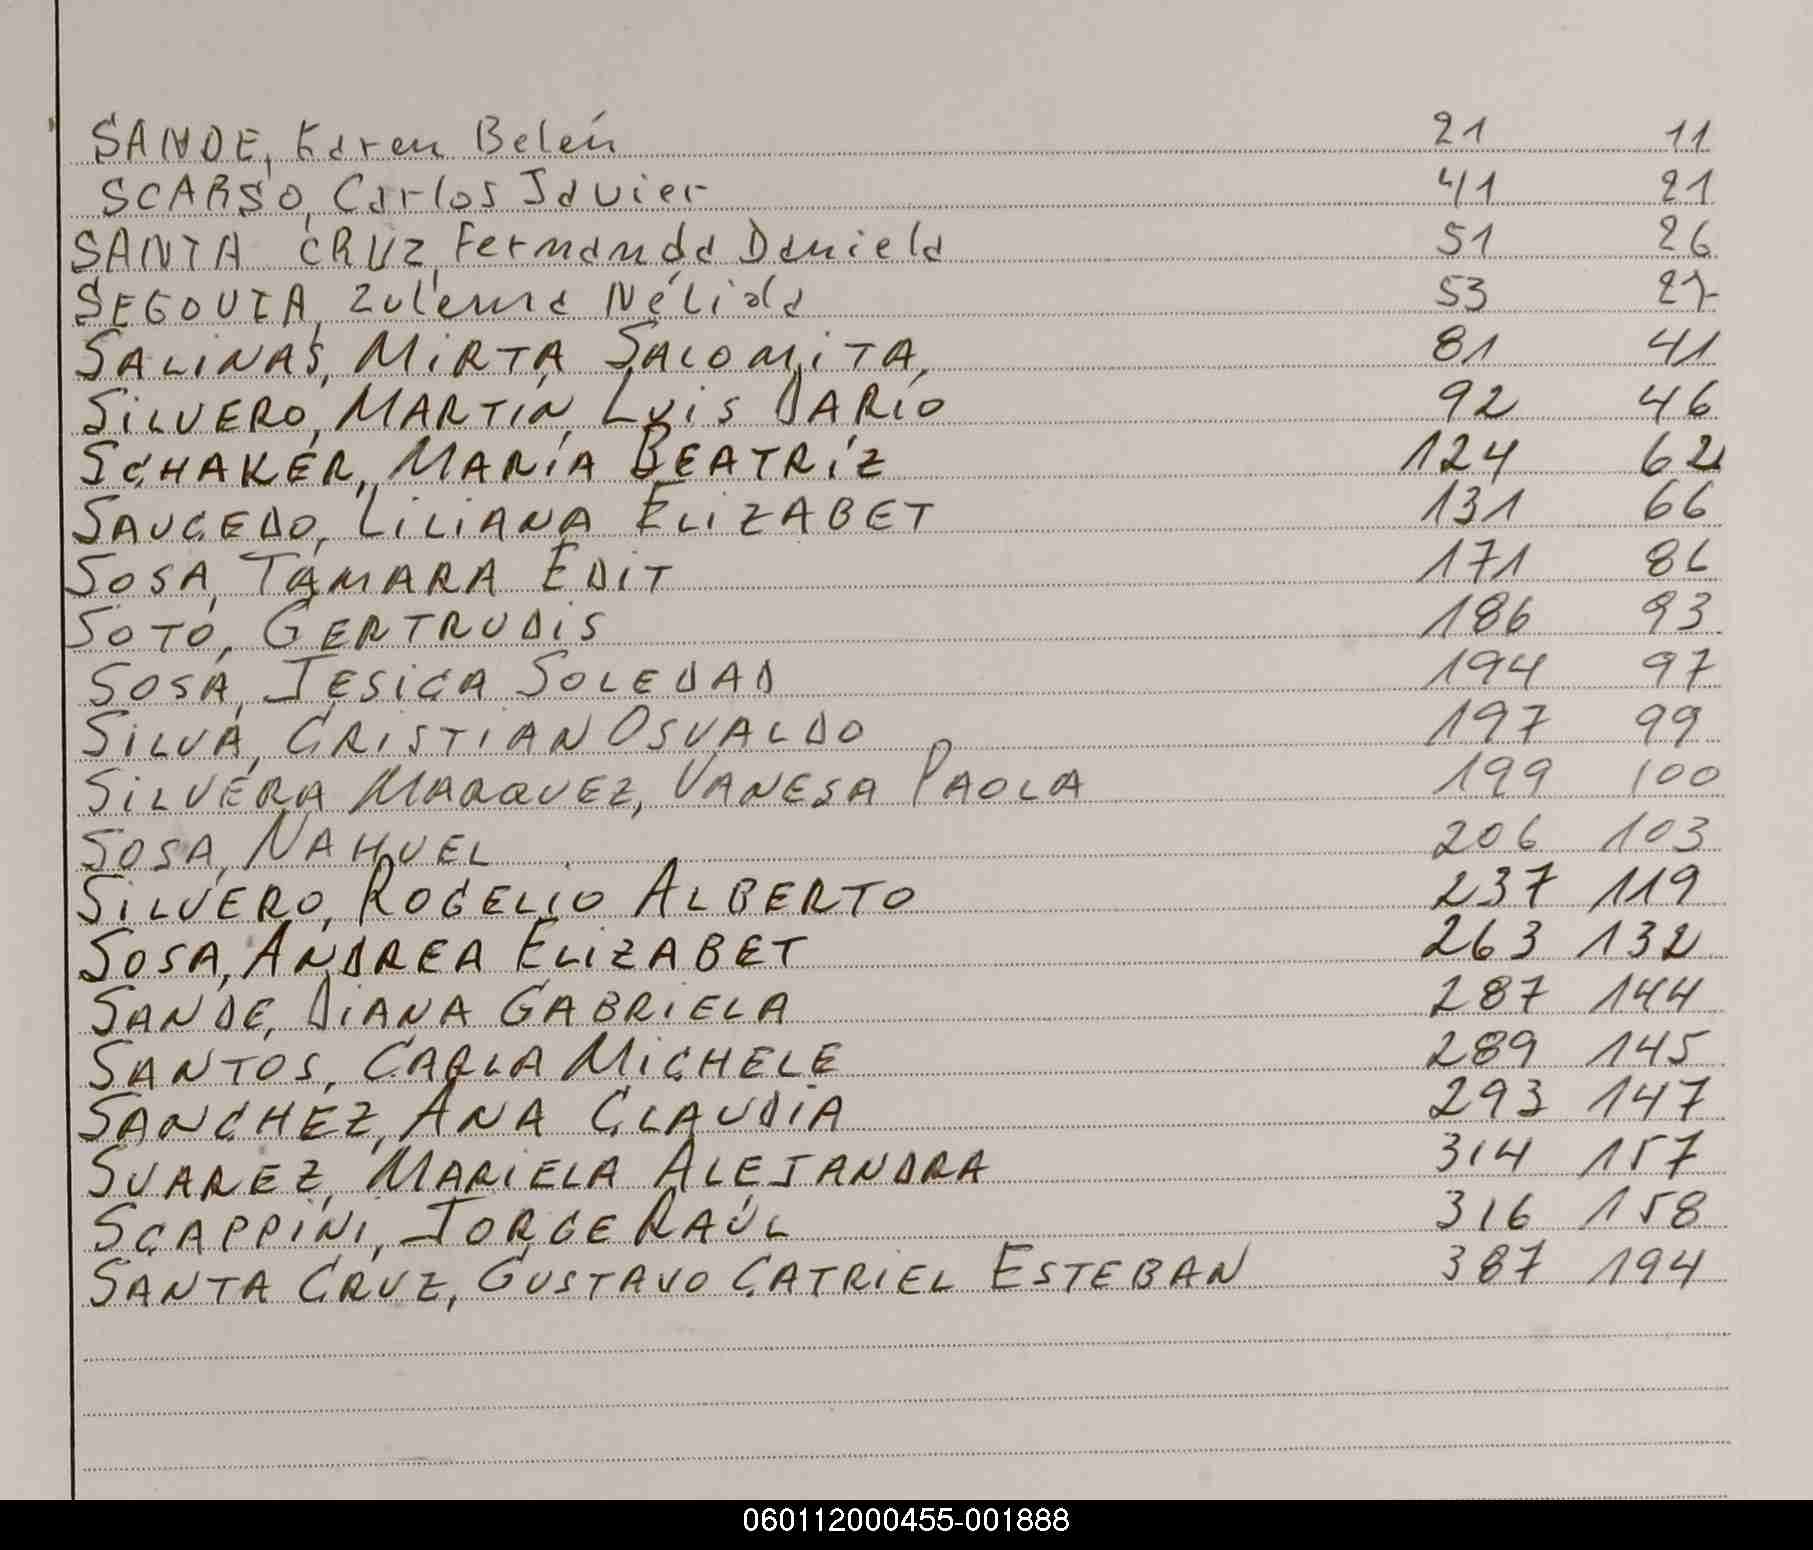 SANDE, Karen Belén 21 11
SCARSO, Carlos Javier 41 21
SANTA CRUZ, Fernanda Daniela 51 26
SEGOVIA, Zulema Nélida 53 27
SALINAS, MIRTA SALOMITA, 81 41
SILVERO, MARTIN, LUIS DARÍO 92 46
SCHAKER, MARÍA BEATRÍZ 124 62
SAUCEDO, LILIANA ELIZABET 131 66
SOSA, TAMARA EDIT 171 86
SOTO, GERTRUDIS 186 93
SOSA, JESICA SOLEDAD 194 97
SILVA, CRISTIAN OSVALDO 197 99
SILVERA MARQUEZ, VANESA PAOLA 199 100
SOSA, NAHUEL 206 103
SILVERO, ROGELIO ALBERTO 237 119
SOSA, ANDREA ELIZABET 263 132
SANDE, DIANA GABRIELA 287 144
SANTOS, CARLA MICHELE 289 145
SANCHEZ, ANA CLAUDIA 293 147
SUAREZ, MARIELA ALEJANDRA 314 157
SCAPPINI, JORGE RAÚL 316 158
SANTA CRUZ, GUSTAVO CATRIEL ESTEBAN 387 194
060112000455-001888